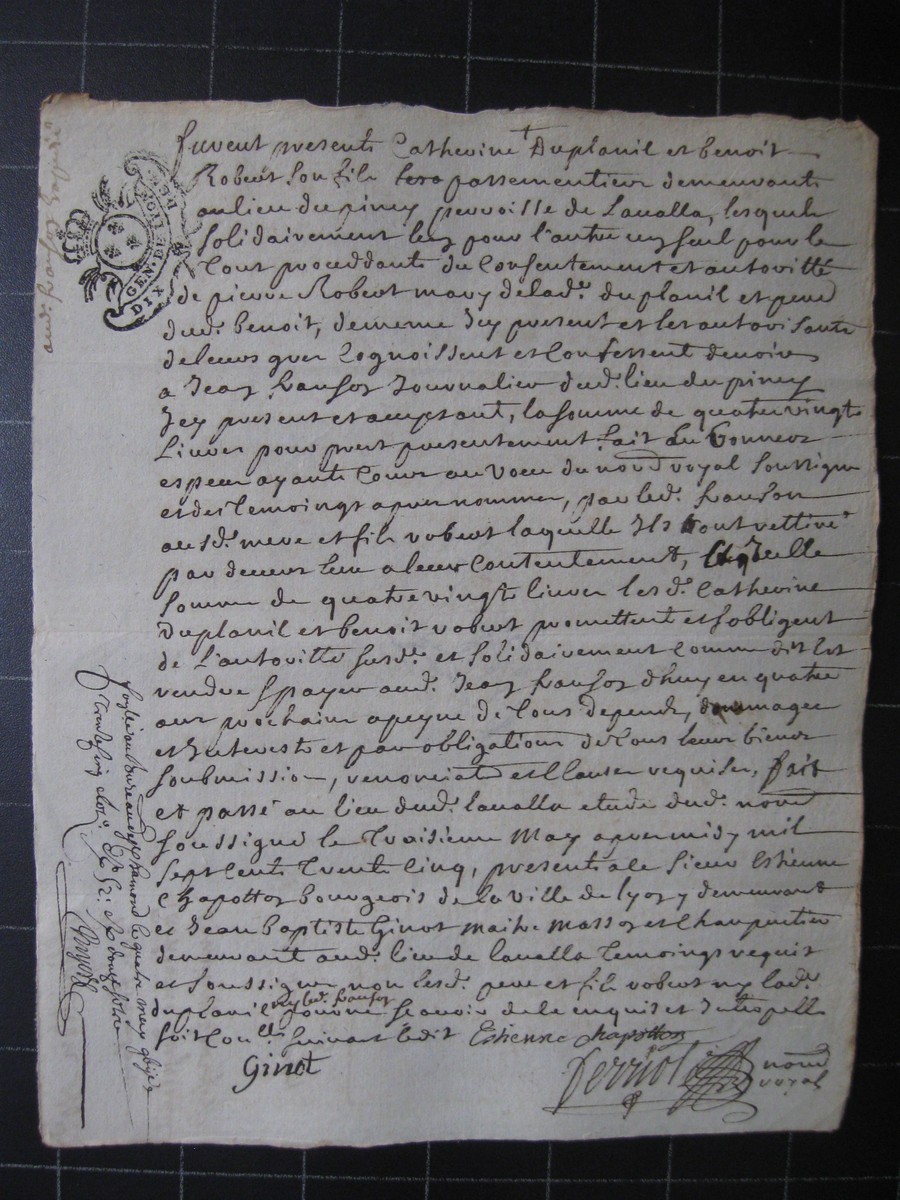 furent presents Catherine Duplanil et benoit
Robert son fils passementiers demeurants
au lieu du piney parroisse de Lavalla, lesquels
solidairement l'un pour l'autre un seul pour le
tout proceddants du Consentement et autoritté
de pierre Robert mary de lade. duplanil et pere
dud. benoit, de meme Icy present et les autorisants
de leurs grez Cognoissent et Confessent devoir
a Jean fransoy Journalier dud. lieu du piney
Icy present et acceptant, la somme de quatre vingts
Livres pour prest presentement fait en bonnes
especes ayants Cours au veu du nore. royal soussigne
et des temoings apres nommes, par led. franson
auxd. mere et fils robert laquelle Ils ont rettiré
par devers eux a leur Contentement, laquelle
somme de quatre vingts livres lesd. Catherine
Duplanil et benoit robert promettent et sobligent
de L'autoritté susde. et solidairement comme dit est
rendre & payer aud. Jean fransoy d'huy en quatre
ans prochains a peyne de tous depends, dommages
et Interests et par obligation de tous leurs biens
soubmission, renonciat. et clauses requises, fait
et passé au lieu dud. lavalla etude dud. nore.
soussigné le troisieme May apres midy mil
sept Cents trente Cinq, presents le sieur Estienne
Chapotton bourgeois de la ville de lyon y demeurant
et Jean baptiste Ginot maitre masson et Charpentier
demeurant aud. lieu de lavalla temoings requis
et soussignes non lesd. pere et fils robert ny lad.
duplanil ny led. fransoy pour ne scavoir de ce enquis et Interpelles
soit Conlle. suivant ledit Estienne chapotton
Ginot
Perriol nore.
royal
GEN. DE LION
DIX
au Bureau de St chamond le quatre may
Reçu